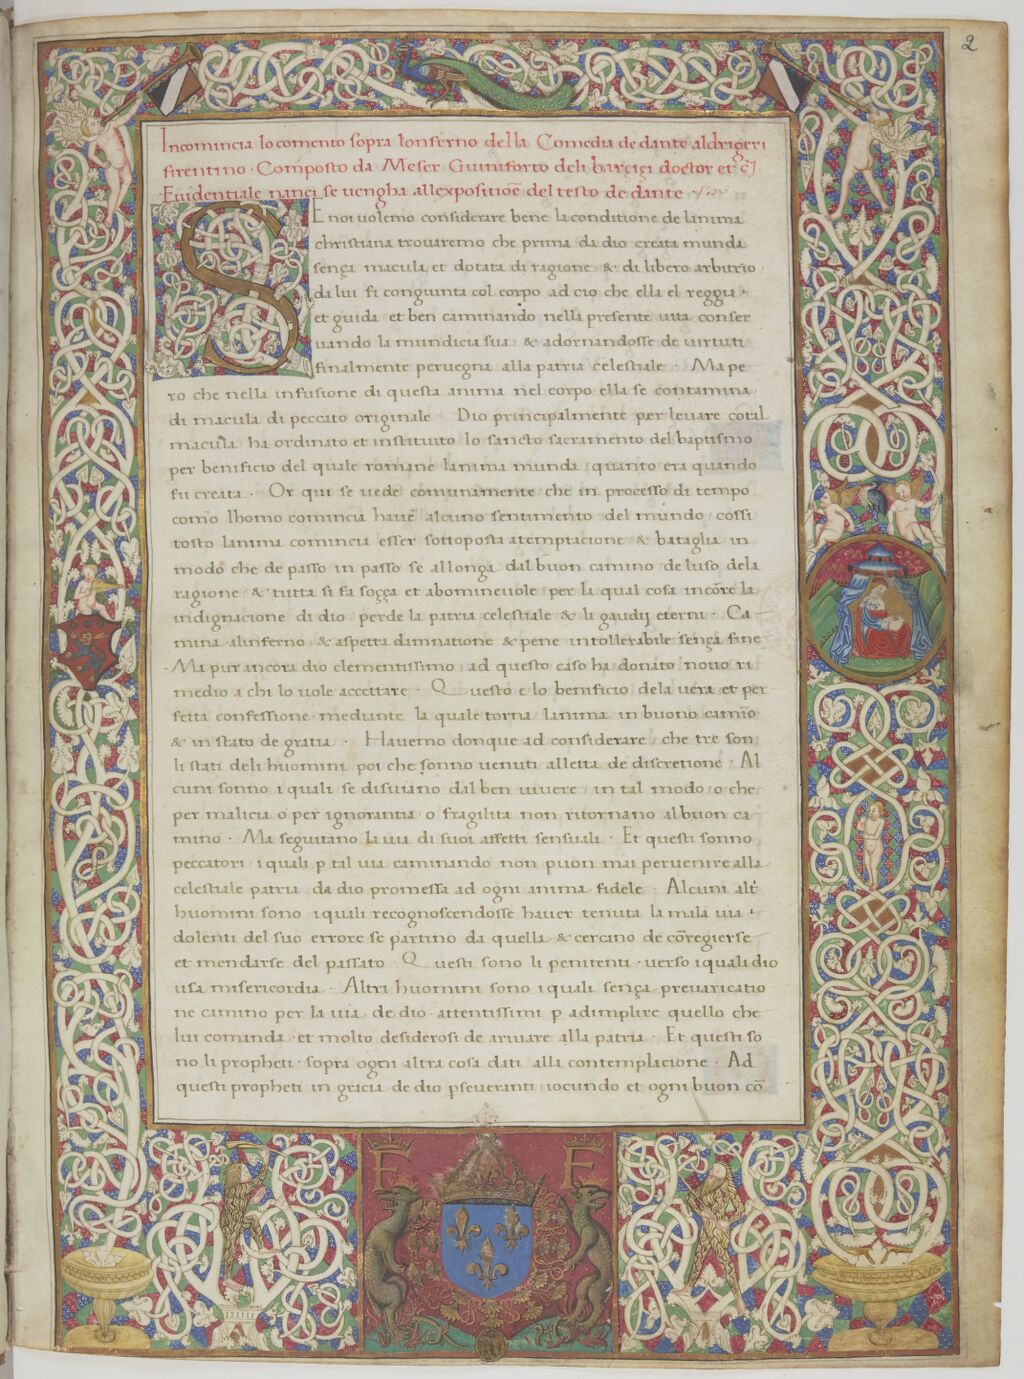 2
Incomincia lo comento sopra lonferno della Comedia de dante aldrigeri
firentino · Composto da Meser Guiniforto deli bargigi doctor et
Euidentiale nanci se uengha allexpositiōe del testo de dante
SE noi uolemo considerare bene la conditione de lanima
christiana trouaremo che prima da dio creata munda
sença macula et dotata di ragione & di libero arbitrio
da lui fi congiunta col corpo ad cio che ella el reggia
et guida et ben caminando nella presente uita conser
uando la mundicia sua & adornandosse de uirtuti
finalmente peruegna alla patria celestiale · Ma pe
ro che nella infusione di questa anima nel corpo ella se contamina
di macula di peccato originale Dio principalmente per leuare cotal
macula ha ordinato et instituito lo sancto sacramento del baptismo
per benificio del quale romane lanima munda quanto era quando
fu creata · Or qui se uede comunamente che in processo di tempo
como lhomo comincia hauē alcuno sentimento del mundo cossi
tosto lanima comincia esser sottoposta a temptacione & bataglia in
modo che de passo in passo se allonga dal buon camino de luso dela
ragione & tutta si fa soçça et abomineuole per la qual cosa incōre la
indignacione di dio perde la patria celestiale & li gaudij eterni · Ca
mina alinferno & aspetta damnatione & pene intollerabile sença fine
· Ma pur ancora dio clementissimo ad questo caso ha donato nouo ri
medio a chi lo uole accettare · Questo e lo benificio dela uera et per
fetta confessione mediante la quale torna lanima in buono camīo
& in stato de gratia · Hauemo donque ad considerare che tre son
li stati deli huomini poi che sonno uenuti alletta de discretione · Al
cuni sonno i quali se disuiano dal ben uiuere in tal modo o che
per malicia o per ignorantia o fragilita non ritornano al buon ca
mino · Ma seguitano la uia di suoi affetti sensuali · Et questi sonno
peccatori i quali p tal uia caminando non puon mai peruenire alla
celestiale patria da dio promessa ad ogni anima fidele · Alcuni alt
huomini sono i quali recognoscendosse hauer tenuta la mala uia
dolenti del suo errore se partino da quella & cercano de cōregierse
et mendarse del passato · Questi sono li penitenti · uerso i quali dio
usa misericordia · Altri huomini sono i quali sença preuaricatio
ne camino per la uia de dio attentissimi p adimplire quello che
lui comanda et molto desiderosi de ariuare alla patria · Et questi so
no li propheti sopra ogni altra cosa dati alla contemplacione · Ad
questi propheti in gracia de dio pseueranti iocundo et ogni buon cō
F F